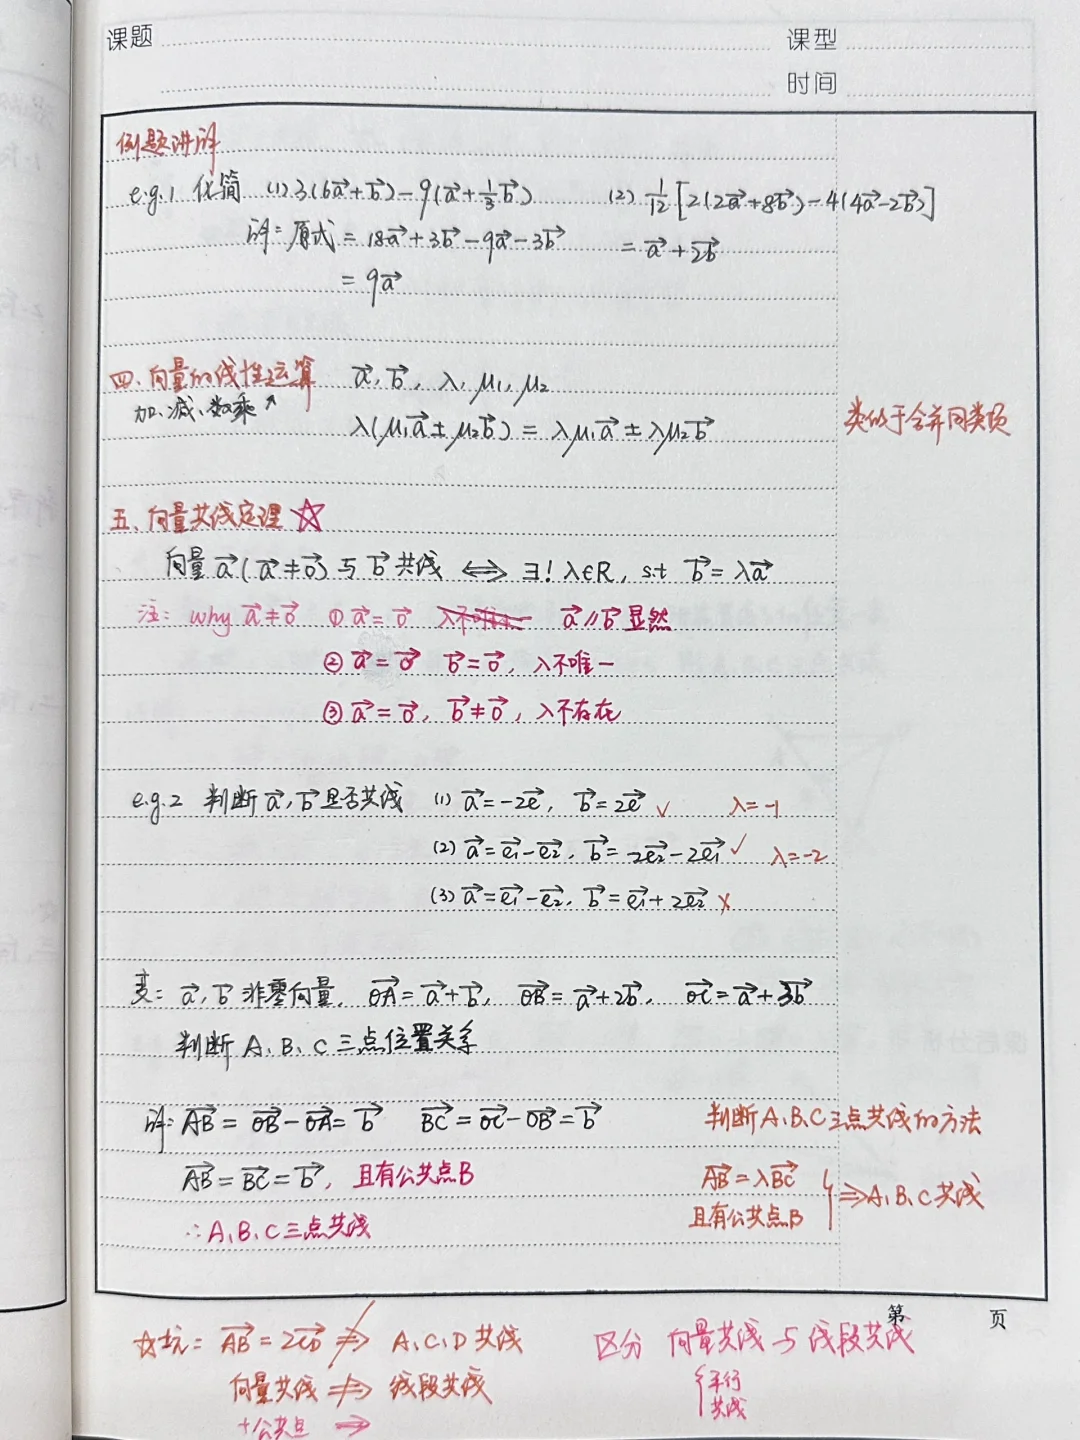 课题
课型
时间
例题讲解
e.g.1 化简 (1) 3(6a⃗+b⃗)-9(a⃗+1/3 b⃗) (2) 1/12[2(2a⃗+8b⃗)-4(4a⃗-2b⃗)]
解: 原式=18a⃗+3b⃗-9a⃗-3b⃗ =a⃗+2b⃗
=9a⃗
四、向量的线性运算 a⃗, b⃗, λ, μ₁, μ₂
加、减、数乘↗
λ(μ₁a⃗±μ₂b⃗)=λμ₁a⃗±λμ₂b⃗ 类似于合并同类项
五、向量共线定理 ☆
向量a⃗(a⃗≠0⃗)与b⃗共线 ⟺ ∃! λ∈R, s.t b⃗=λa⃗
注: why a⃗≠0⃗ ① a⃗=0⃗ a⃗∥b⃗显然
② a⃗=0⃗ b⃗=0⃗, λ不唯一
③ a⃗=0⃗, b⃗≠0⃗, λ不存在
e.g.2 判断a⃗, b⃗是否共线 (1) a⃗=-2e⃗, b⃗=2e⃗ ✓ λ=-1
(2) a⃗=e₁⃗-e₂⃗, b⃗=2e₂⃗-2e₁⃗ ✓ λ=-2
(3) a⃗=e₁⃗-e₂⃗, b⃗=e₁⃗+2e₂⃗ ×
变: a⃗, b⃗非零向量, OA⃗=a⃗+b⃗, OB⃗=a⃗+2b⃗, OC⃗=a⃗+3b⃗
判断A、B、C三点位置关系
解: AB⃗=OB⃗-OA⃗=b⃗ BC⃗=OC⃗-OB⃗=b⃗
AB⃗=BC⃗=b⃗, 且有公共点B
∴A、B、C三点共线
判断A、B、C三点共线的方法
AB⃗=λBC⃗
且有公共点B } ⇒A、B、C共线
第 页
☆坑: AB⃗=2CD⃗ ⇏ A、C、D共线
向量共线 ⇏ 线段共线
+公共点 ⇒
区分 向量共线与线段共线
{平行
共线